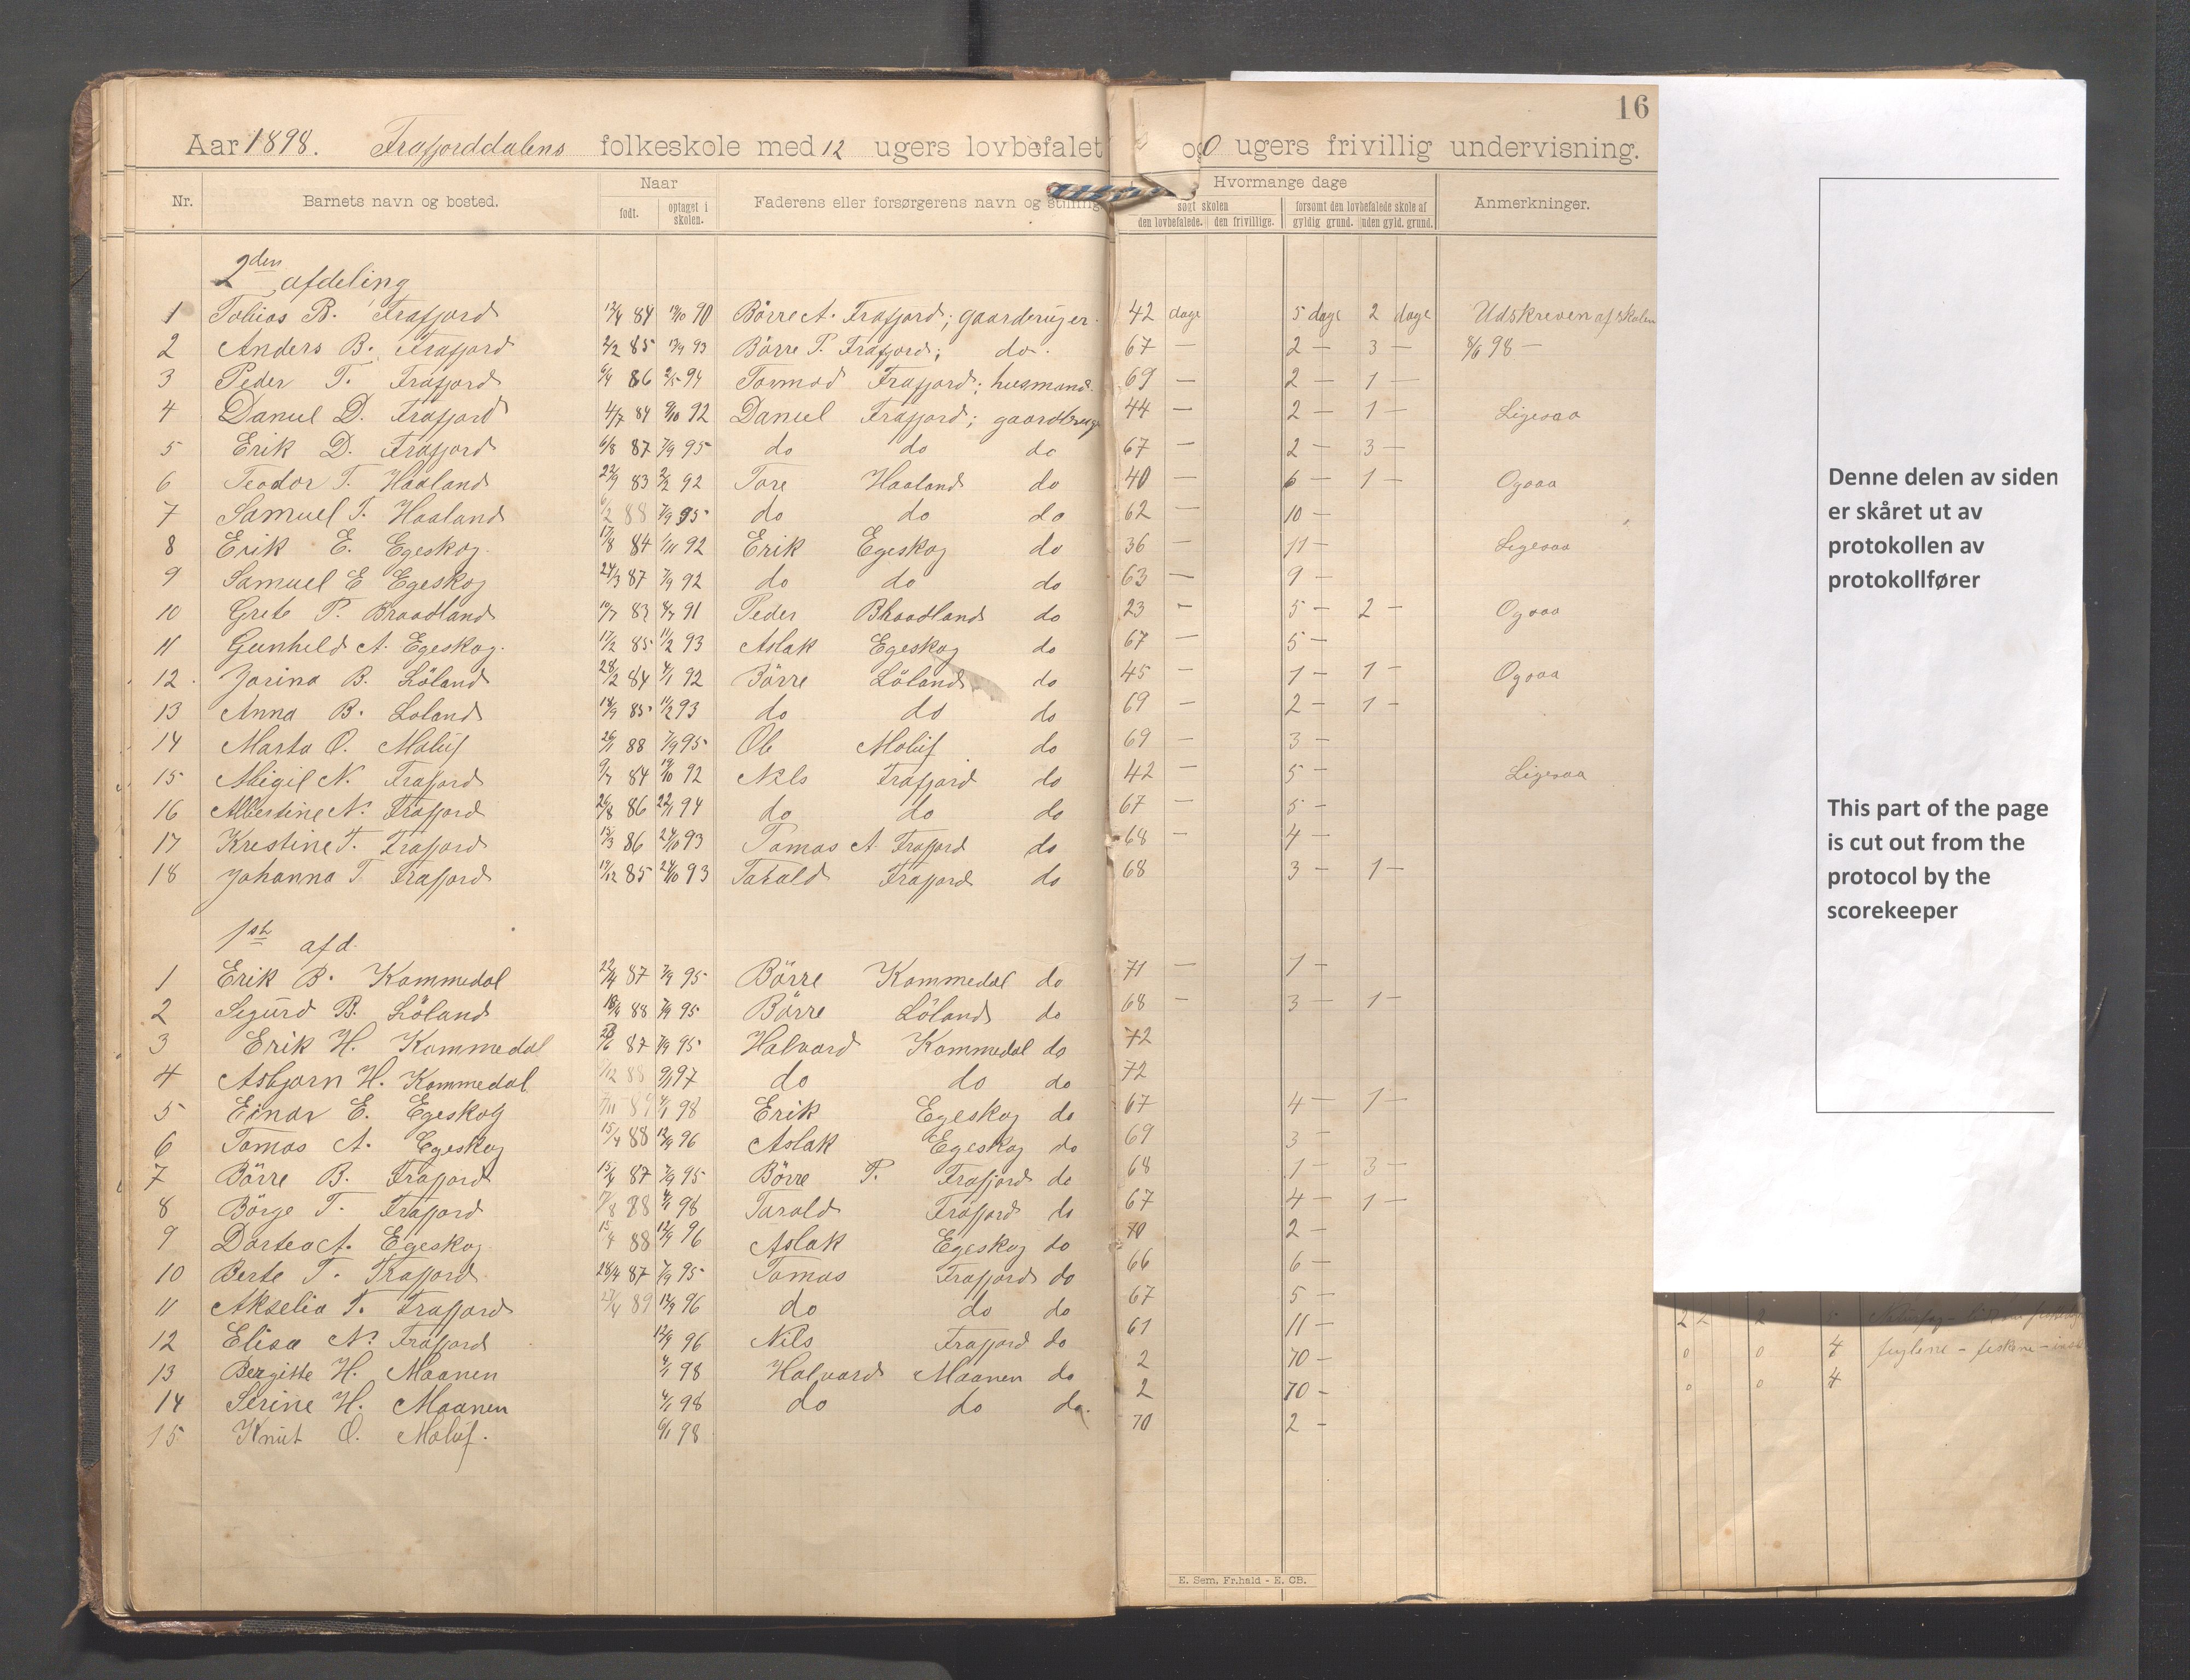 16
Aar 1898. Trafjorddalens folkeskole med 12 ugers lovbefalet og 0 ugers frivillig undervisning.
Nr. Barnets navn og bosted. Naar født. optaget i skolen. Faderens eller forsørgerens navn og stilling. Hvormange dage søgt skolen den lovbefalede. den frivillige. forsømt den lovbefalede skole af gyldig grund. uden gyld. grund. Anmerkninger.
2den afdeling
1 Tobias B. Frafjord 12/4 84 13/10 90 Börre A. Frafjord; gaardbruger. 42 dage 5 dage 2 dage Udskreven af skolen
2 Anders B. Frafjord 2/2 85 13/9 93 Börre P. Frafjord; do. 67 — 2 — 3 — 8/6 98 —
3 Peder T. Frafjord 6/4 86 2/5 94 Tormod Frafjord; husmand. 69 — 2 — 1 —
4 Daniel D. Frafjord 4/7 84 9/10 92 Daniel Frafjord; gaardbrug 44 — 2 — 1 — Ligesaa
5 Erik D. Frafjord 6/8 87 7/9 95 do do do 67 — 2 — 3 —
6 Teodor T. Haaland 22/9 83 2/2 92 Tore Haaland do 40 — 6 — 1 — Ogsaa
7 Samuel T. Haaland 6/2 88 7/9 95 do do do 62 — 10 —
8 Erik E. Egeskog. 17/8 84 1/11 92 Erik Egeskog do 36 — 11 — Ligesaa
9 Samuel E Egeskog 24/3 87 7/9 92 do do do 63 — 9 —
10 Grete P. Braadland 83 91 Peder Bhaadland do 23 - 5 — 2 — Ogsaa
11 Gunhild A. Egeskog. 17/2 85 11/2 93 Aslak Egeskog do 67 — 5 —
12 Jorina B. Löland 28/2 84 4/1 92 Börre Löland do 45 — 1 — 1 — Ogsaa
13 Anna B. Loland 14/9 85 11/2 93 do do do 69 — 2 — 1 —
14 Marta O. Molüf 26/1 88 7/9 95 Ole Molüf do 69 — 3 —
15 Abigil N. Frafjord 9/7 84 19/10 92 Nils Frafjord do 42 — 5 — Ligesaa
16 Albertine N. Frafjord 26/8 86 22/1 94 do do do 67 — 5 —
17 Krestine T. Frafjord 15/3 86 24/10 93 Tomas A. Frafjord do 68 — 4 —
18 Johanna T. Frafjord 19/12 85 24/10 93 Tarald Frafjord do 68 3 — 1 —
1ste afd.
1 Erik B. Kommedal 22/4 87 7/9 95 Börre Kommedal do 71 — 1 —
2 Sigürd B. Löland 18/4 88 7/9 95 Börre Löland do 68 — 3 — 1 —
3 Erik H. Kommedal 87 7/9 95 Halvard Kommedal do 72
4 Asbjørn H. Kommedal 88 9/1 97 do do do 72
5 Einar E. Egeskog 7/11 89 4/1 98 Erik Egeskog do 67 4 — 1 —
6 Tomas A. Egeskog 15/4 88 12/9 96 Aslak Egeskog do 69 3 —
7 Börre B. Frafjord 15/4 87 7/9 95 Börre P. Frafjord do 68 1 — 3 —
8 Börge T. Frafjord 17/8 88 4/1 98 Tarald Frafjord do 67 4 — 1 —
9 Dortea A. Egeskog 15/4 88 12/9 96 Aslak Egeskog do 70 2 —
10 Berte T. Frafjord 28/4 87 7/9 95 Tomas Frafjord do 66 6 —
11 Akselia T. Frafjord 27/4 89 12/9 96 do do do 67 5 —
12 Elisa N. Frafjord 12/9 96 Nils Frafjord do 61 11 —
13 Bergitte H. Maanen 4/1 98 Halvard Maanen do 2 70 —
14 Serine H. Maanen 4/1 98 do do do. 2 70 —
15 Knüt O. Molüf. 6/1 98 70 2 —
E. Sem, Fr.hald - E. CB.
Denne delen av siden
er skåret ut av
protokollen av
protokollfører
This part of the page
is cut out from the
protocol by the
scorekeeper
2 2 2
0 0 4 fuglene - fiskene -
0 0 4